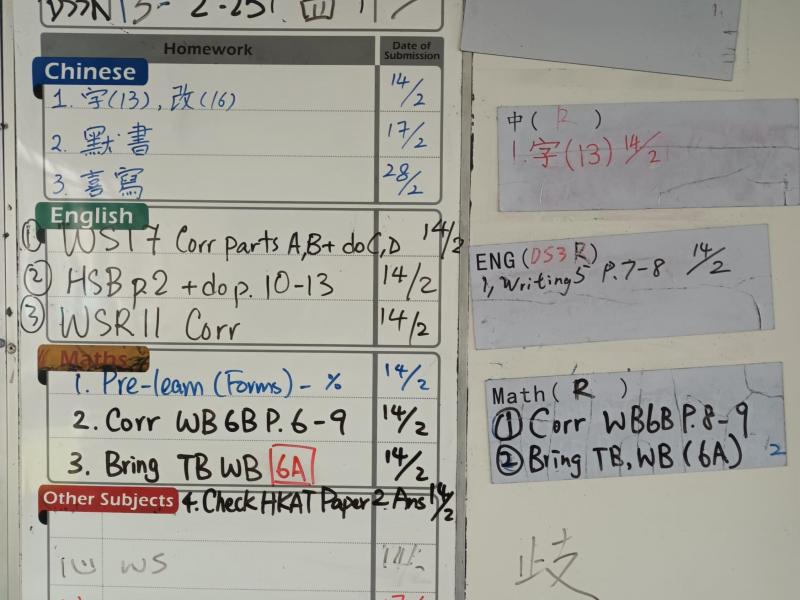 Homework Date of Submission
Chinese
1. 字(13), 改(16) 14/2
2. 默書 17/2
3. 喜寫 28/2
English
① WS17 Corr parts A,B + do C,D 14/2
② HSB p.2 + do p. 10-13 14/2
③ WSR11 Corr 14/2
Maths
1. Pre-learn (Forms) - % 14/2
2. Corr WB 6B P. 6-9 14/2
3. Bring TB WB 6A 14/2
Other Subjects 4. Check HKAT Paper 2 Ans 14/2
心 WS
中( R )
1. 字(13) 14/2
ENG(DS3 R)
1, Writing 5 P. 7-8 14/2
Math( R )
① Corr WB6B P. 8-9
② Bring TB, WB (6A) 2
歧